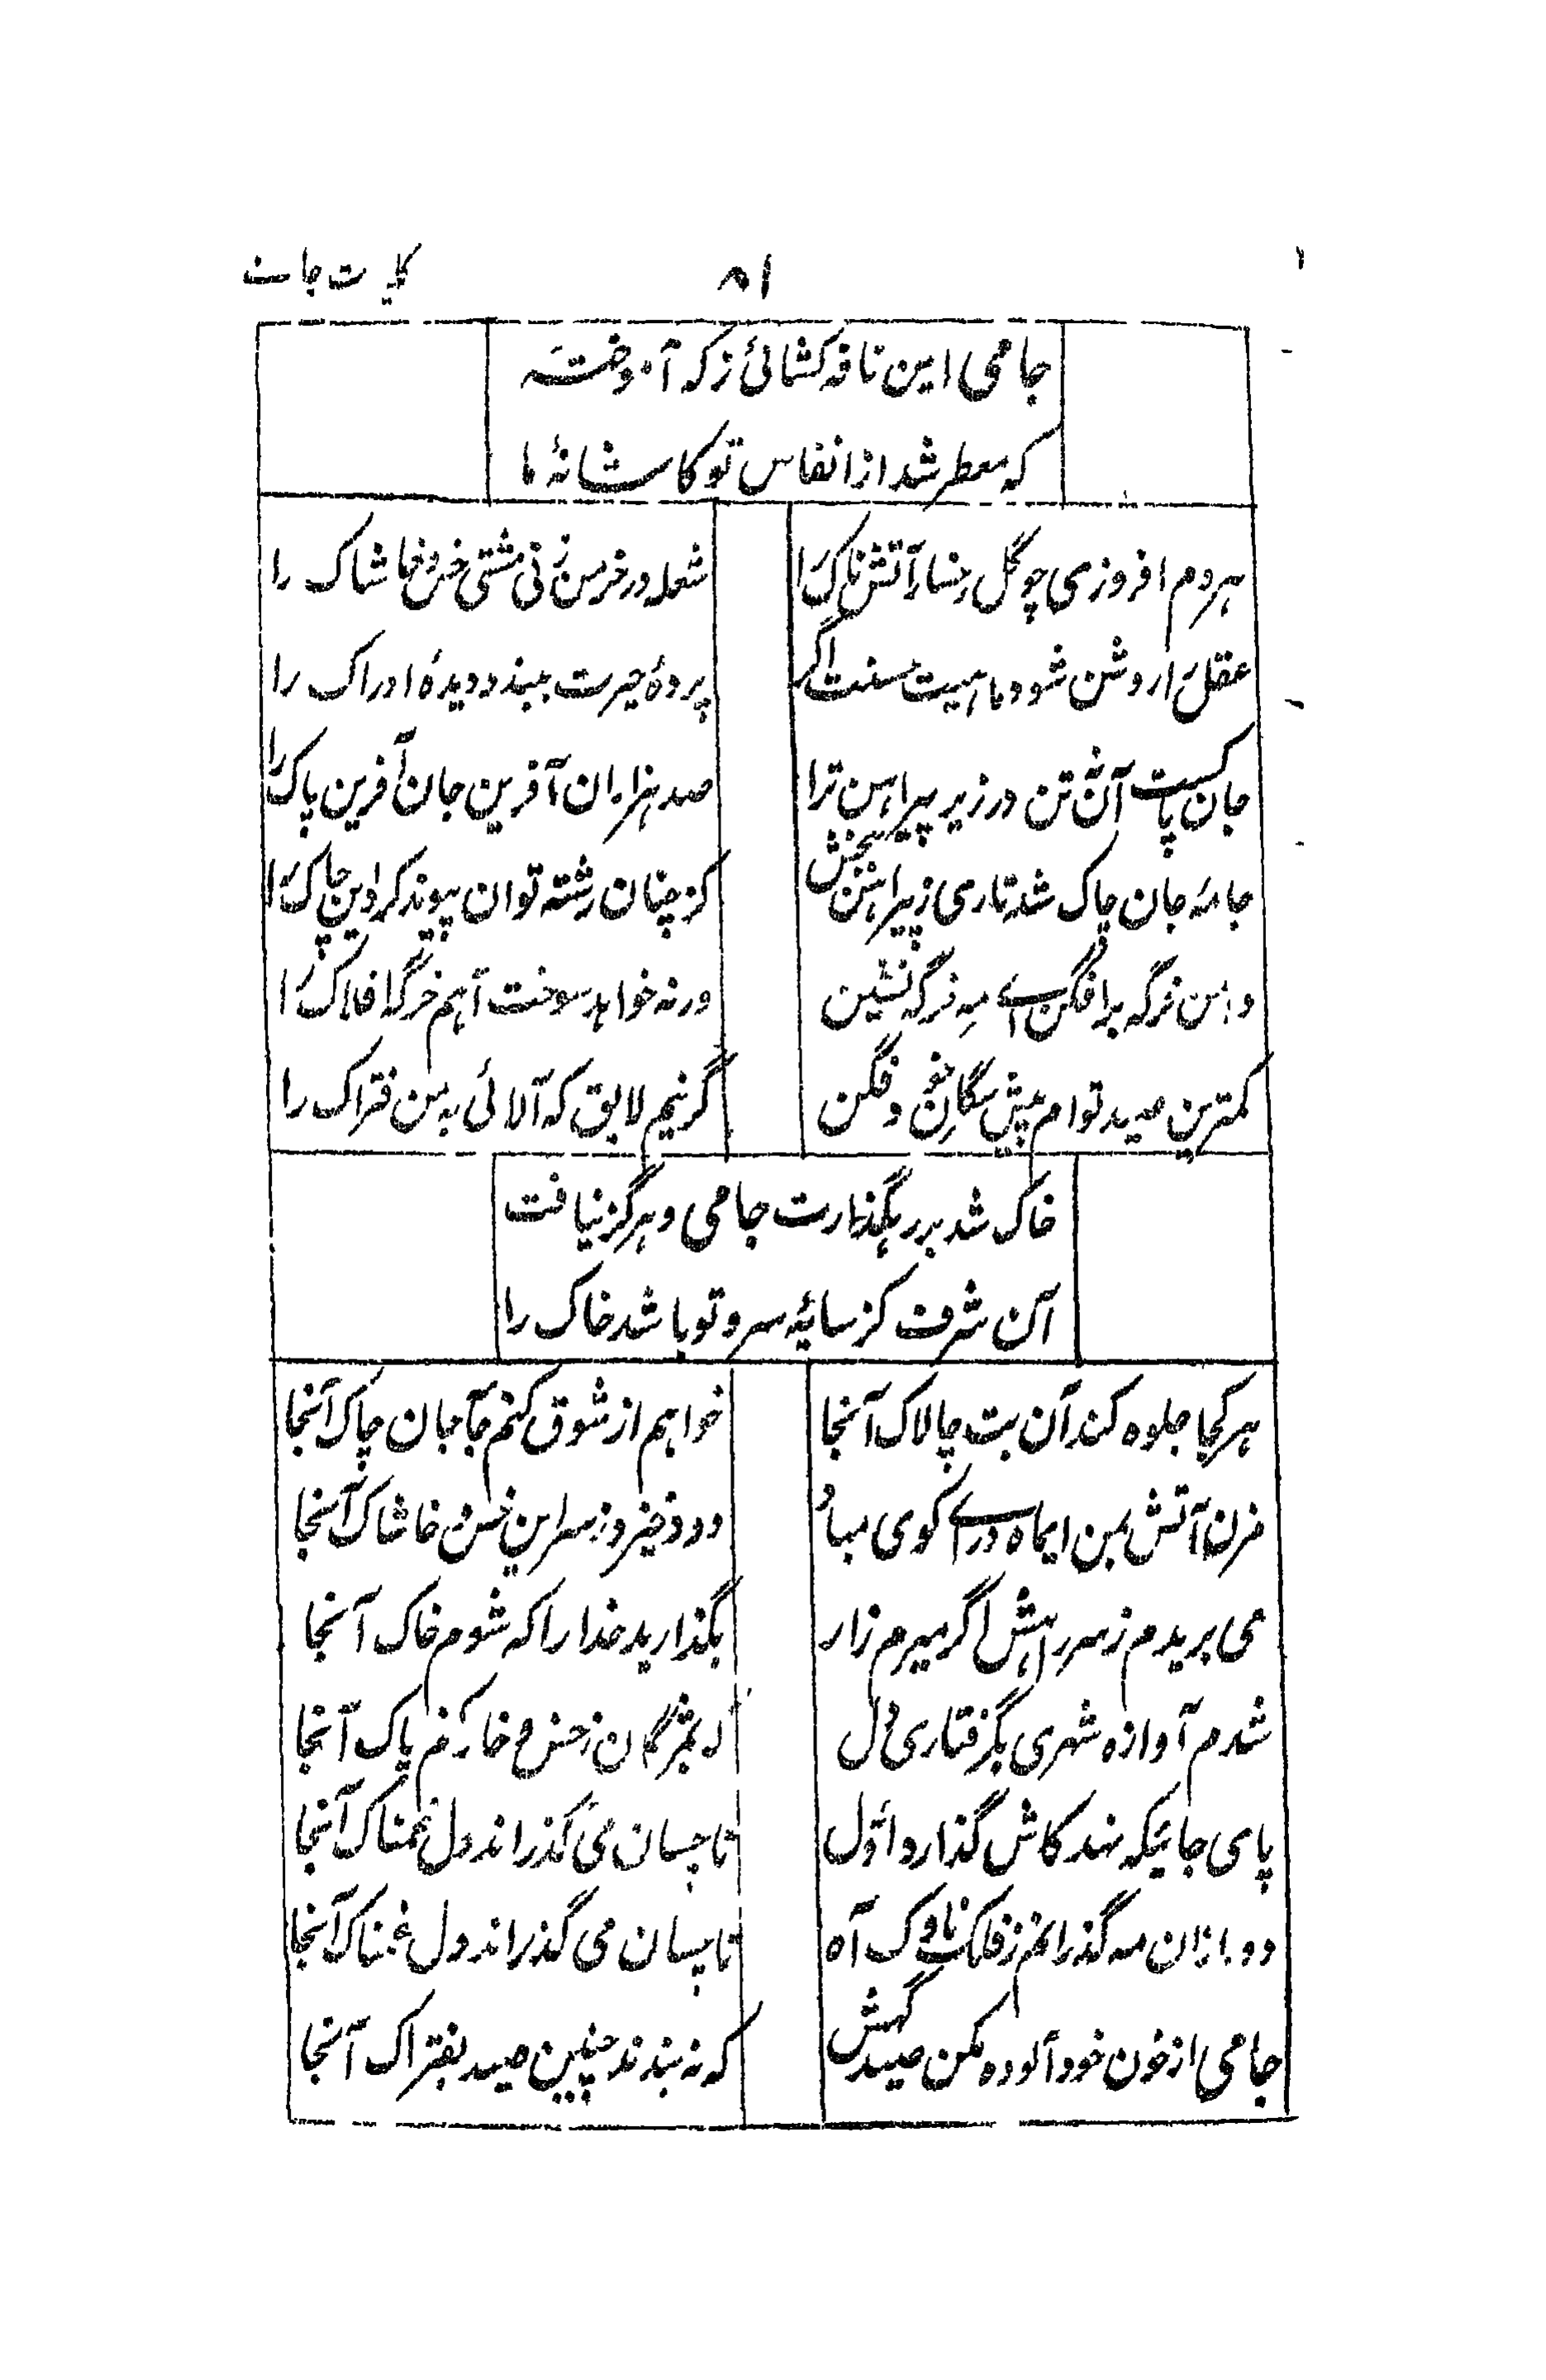 کلیات جامی
۸۱
جامی این نافه کشائی ز که آموخته
که معطر شد از انفاس تو کاشانهٔ ما
هر دم افروزی چو گل رخسار آتشناک را
شعله در خرمن زنی مشتی خس و خاشاک را
عقل را روشن شود ماهیت حسنت اگر
پردهٔ حیرت نبندد دیدهٔ ادراک را
جان پاکست آن نه تن در زیر پیراهن ترا
صد هزاران آفرین جان آفرین پاک را
جامهٔ جان چاک شد تاری ز پیراهن ببخش
کز چنان رشته توان پیوند کرد این چاک را
دامن خرگه برافکن اے مه خرگه نشین
ورنه خواهد سوخت آهم خرگه افلاک را
کمترین صید توام پیش سگان خود فکن
گر نیم لایق که آلائی به من فتراک را
خاک شد بر رهگذارت جامی و هرگز نیافت
آن شرف کز سایهٔ سرو تو باشد خاک را
هر کجا جلوه کند آن بت چالاک آنجا
خواهم از شوق کنم جامهٔ جان چاک آنجا
مزن آتش بمن ایماه درے کوی مباد
دود خیزد ز سر این خس و خاشاک آنجا
می بریدم ز سر راهش اگر میرم زار
بگذارید خدا را که شوم خاک آنجا
شدم آوازه شهری بگرفتاری دل
که بمژگان ز خس و خار کنم پاک آنجا
پای جائیکه نهد کاش گذارد اول
تا چسان می گذراند دل غمناک آنجا
دور ازان مه گذرانم ز فلک ناوک آه
تا چسان می گذراند دل غمناک آنجا
جامی از خون خود آلوده مکن صید گهش
که نه بندند چنین صید بفتراک آنجا